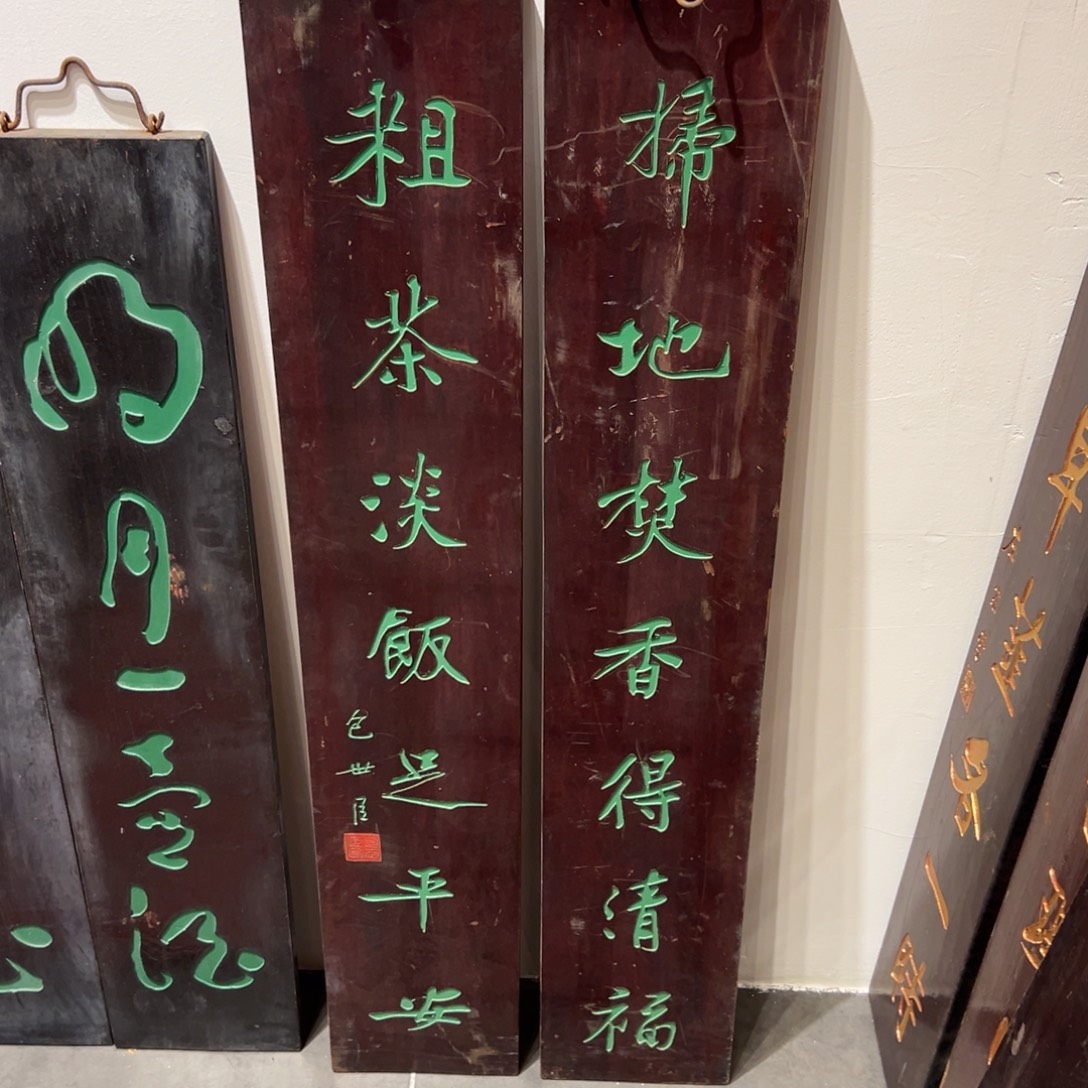 掃地焚香得清福
粗茶淡飯足平安
包世臣
明月一壺酒